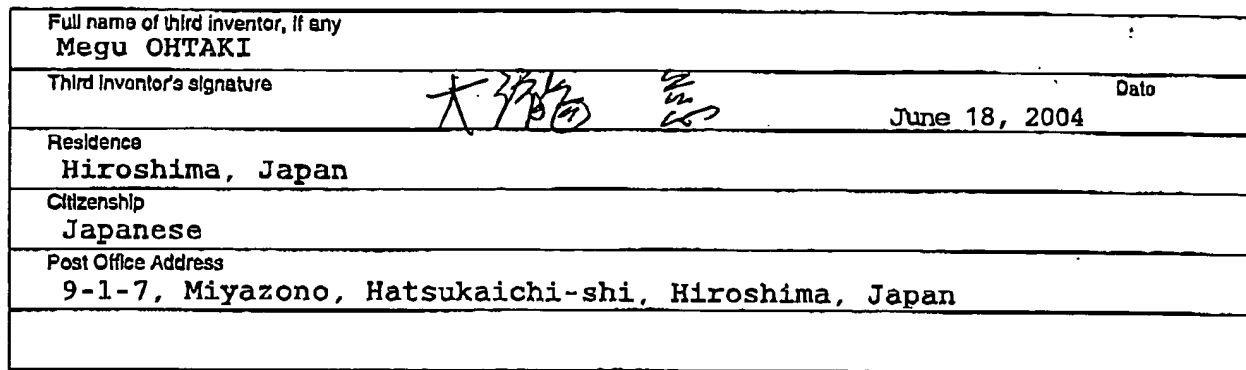 Full name of third inventor, if any
Megu OHTAKI
Third inventor's signature 大瀧 慈 Date
June 18, 2004
Residence
Hiroshima, Japan
Citizenship
Japanese
Post Office Address
9-1-7, Miyazono, Hatsukaichi-shi, Hiroshima, Japan